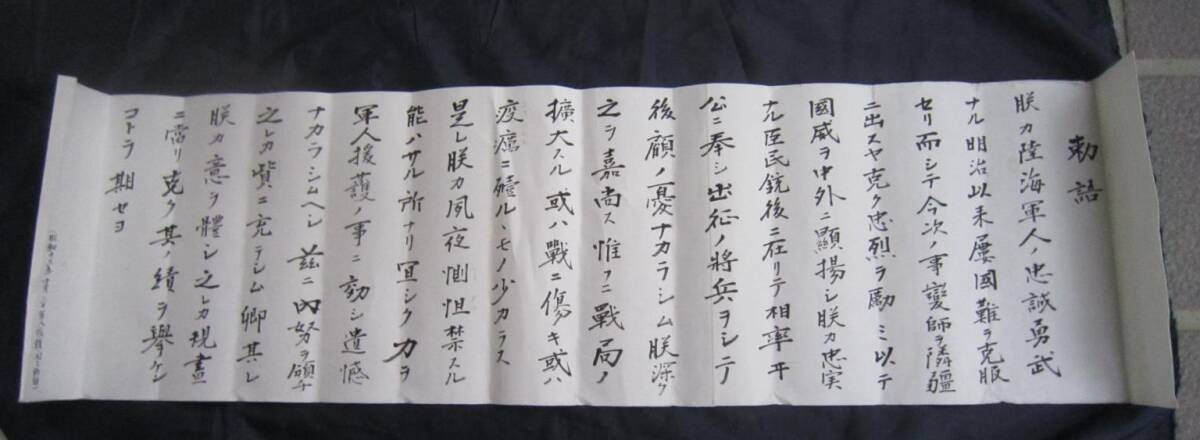 勅語
朕カ陸海軍人ノ忠誠勇武
ナル明治以来屡國難ヲ克服
セリ而シテ今次ノ事變師ヲ隣疆
ニ出スヤ克ク忠烈ヲ勵ミ以テ
國威ヲ中外ニ顯揚シ朕カ忠実
ナル臣民銃後ニ在リテ相率ヰ
公ニ奉シ出征ノ將兵ヲシテ
後顧ノ憂ナカラシム朕深ク
之ヲ嘉尚ス惟フニ戰局ノ
擴大スル或ハ戰ニ傷キ或ハ
疫癘ニ磪ルヽモノ少カラス
是レ朕カ夙夜惻怛禁スル
能ハサル所ナリ宜シク力ヲ
軍人援護ノ事ニ効シ遺憾
ナカラシムヘシ茲ニ内努ヲ頒チ
之レカ資ニ充テシム卿其レ
朕カ意ヲ體シ之レカ規畫
ニ當リ克ク其ノ績ヲ擧ケン
コトヲ期セヨ